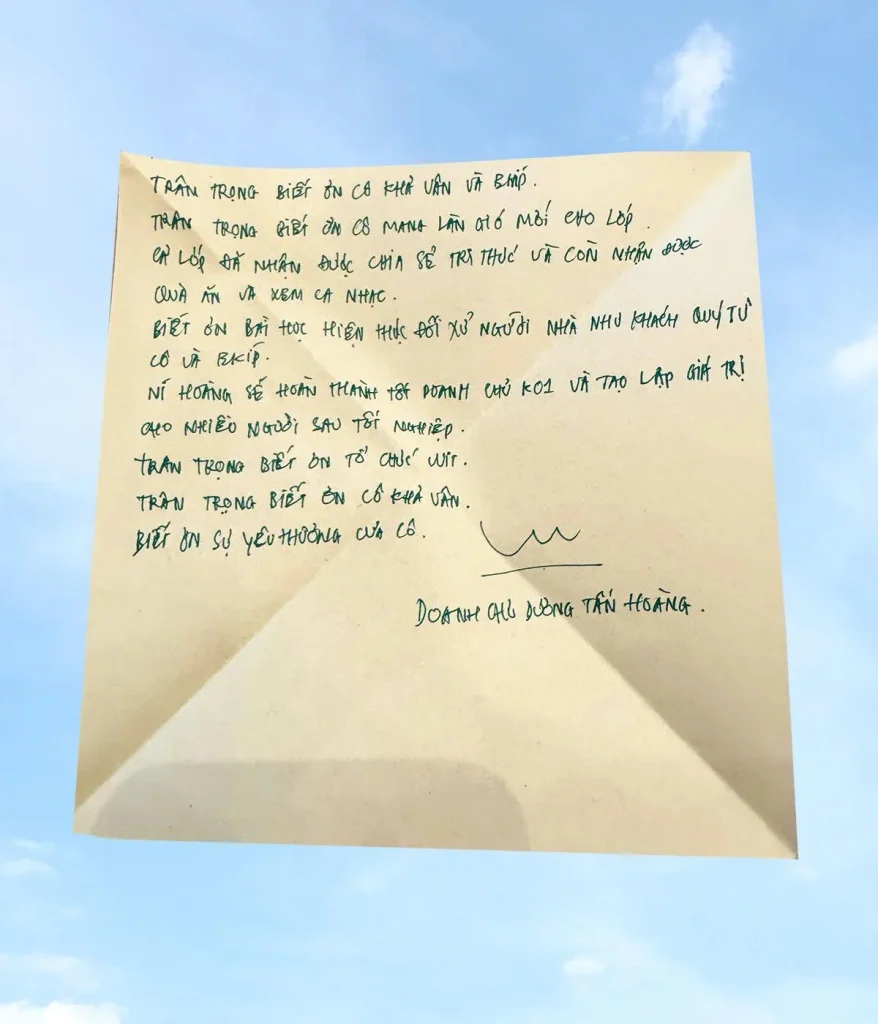 TRÂN TRỌNG BIẾT ƠN CÔ KHẢ VÂN VÀ EKÍP.
TRÂN TRỌNG BIẾT ƠN CÔ MANG LÀN GIÓ MỚI CHO LỚP.
CẢ LỚP ĐÃ NHẬN ĐƯỢC CHIA SẺ TRI THỨC VÀ CÒN NHẬN ĐƯỢC
QUÀ ĂN VÀ XEM CA NHẠC.
BIẾT ƠN BÀI HỌC HIỆN THỰC ĐỐI XỬ NGƯỜI NHÀ NHƯ KHÁCH QUÝ TỪ
CÔ VÀ EKÍP.
NÍ HOÀNG SẼ HOÀN THÀNH TỐT DOANH CHỦ K01 VÀ TẠO LẬP GIÁ TRỊ
CHO NHIỀU NGƯỜI SAU TỐT NGHIỆP.
TRÂN TRỌNG BIẾT ƠN TỔ CHỨC WIT.
TRÂN TRỌNG BIẾT ƠN CÔ KHẢ VÂN.
BIẾT ƠN SỰ YÊU THƯƠNG CỦA CÔ.
DOANH CHỦ DƯƠNG TẤN HOÀNG.